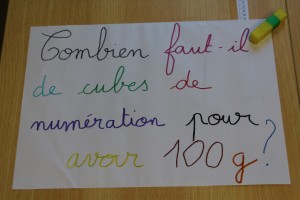 Combien faut-il
de cubes de
numération pour
avoir 100 g ?